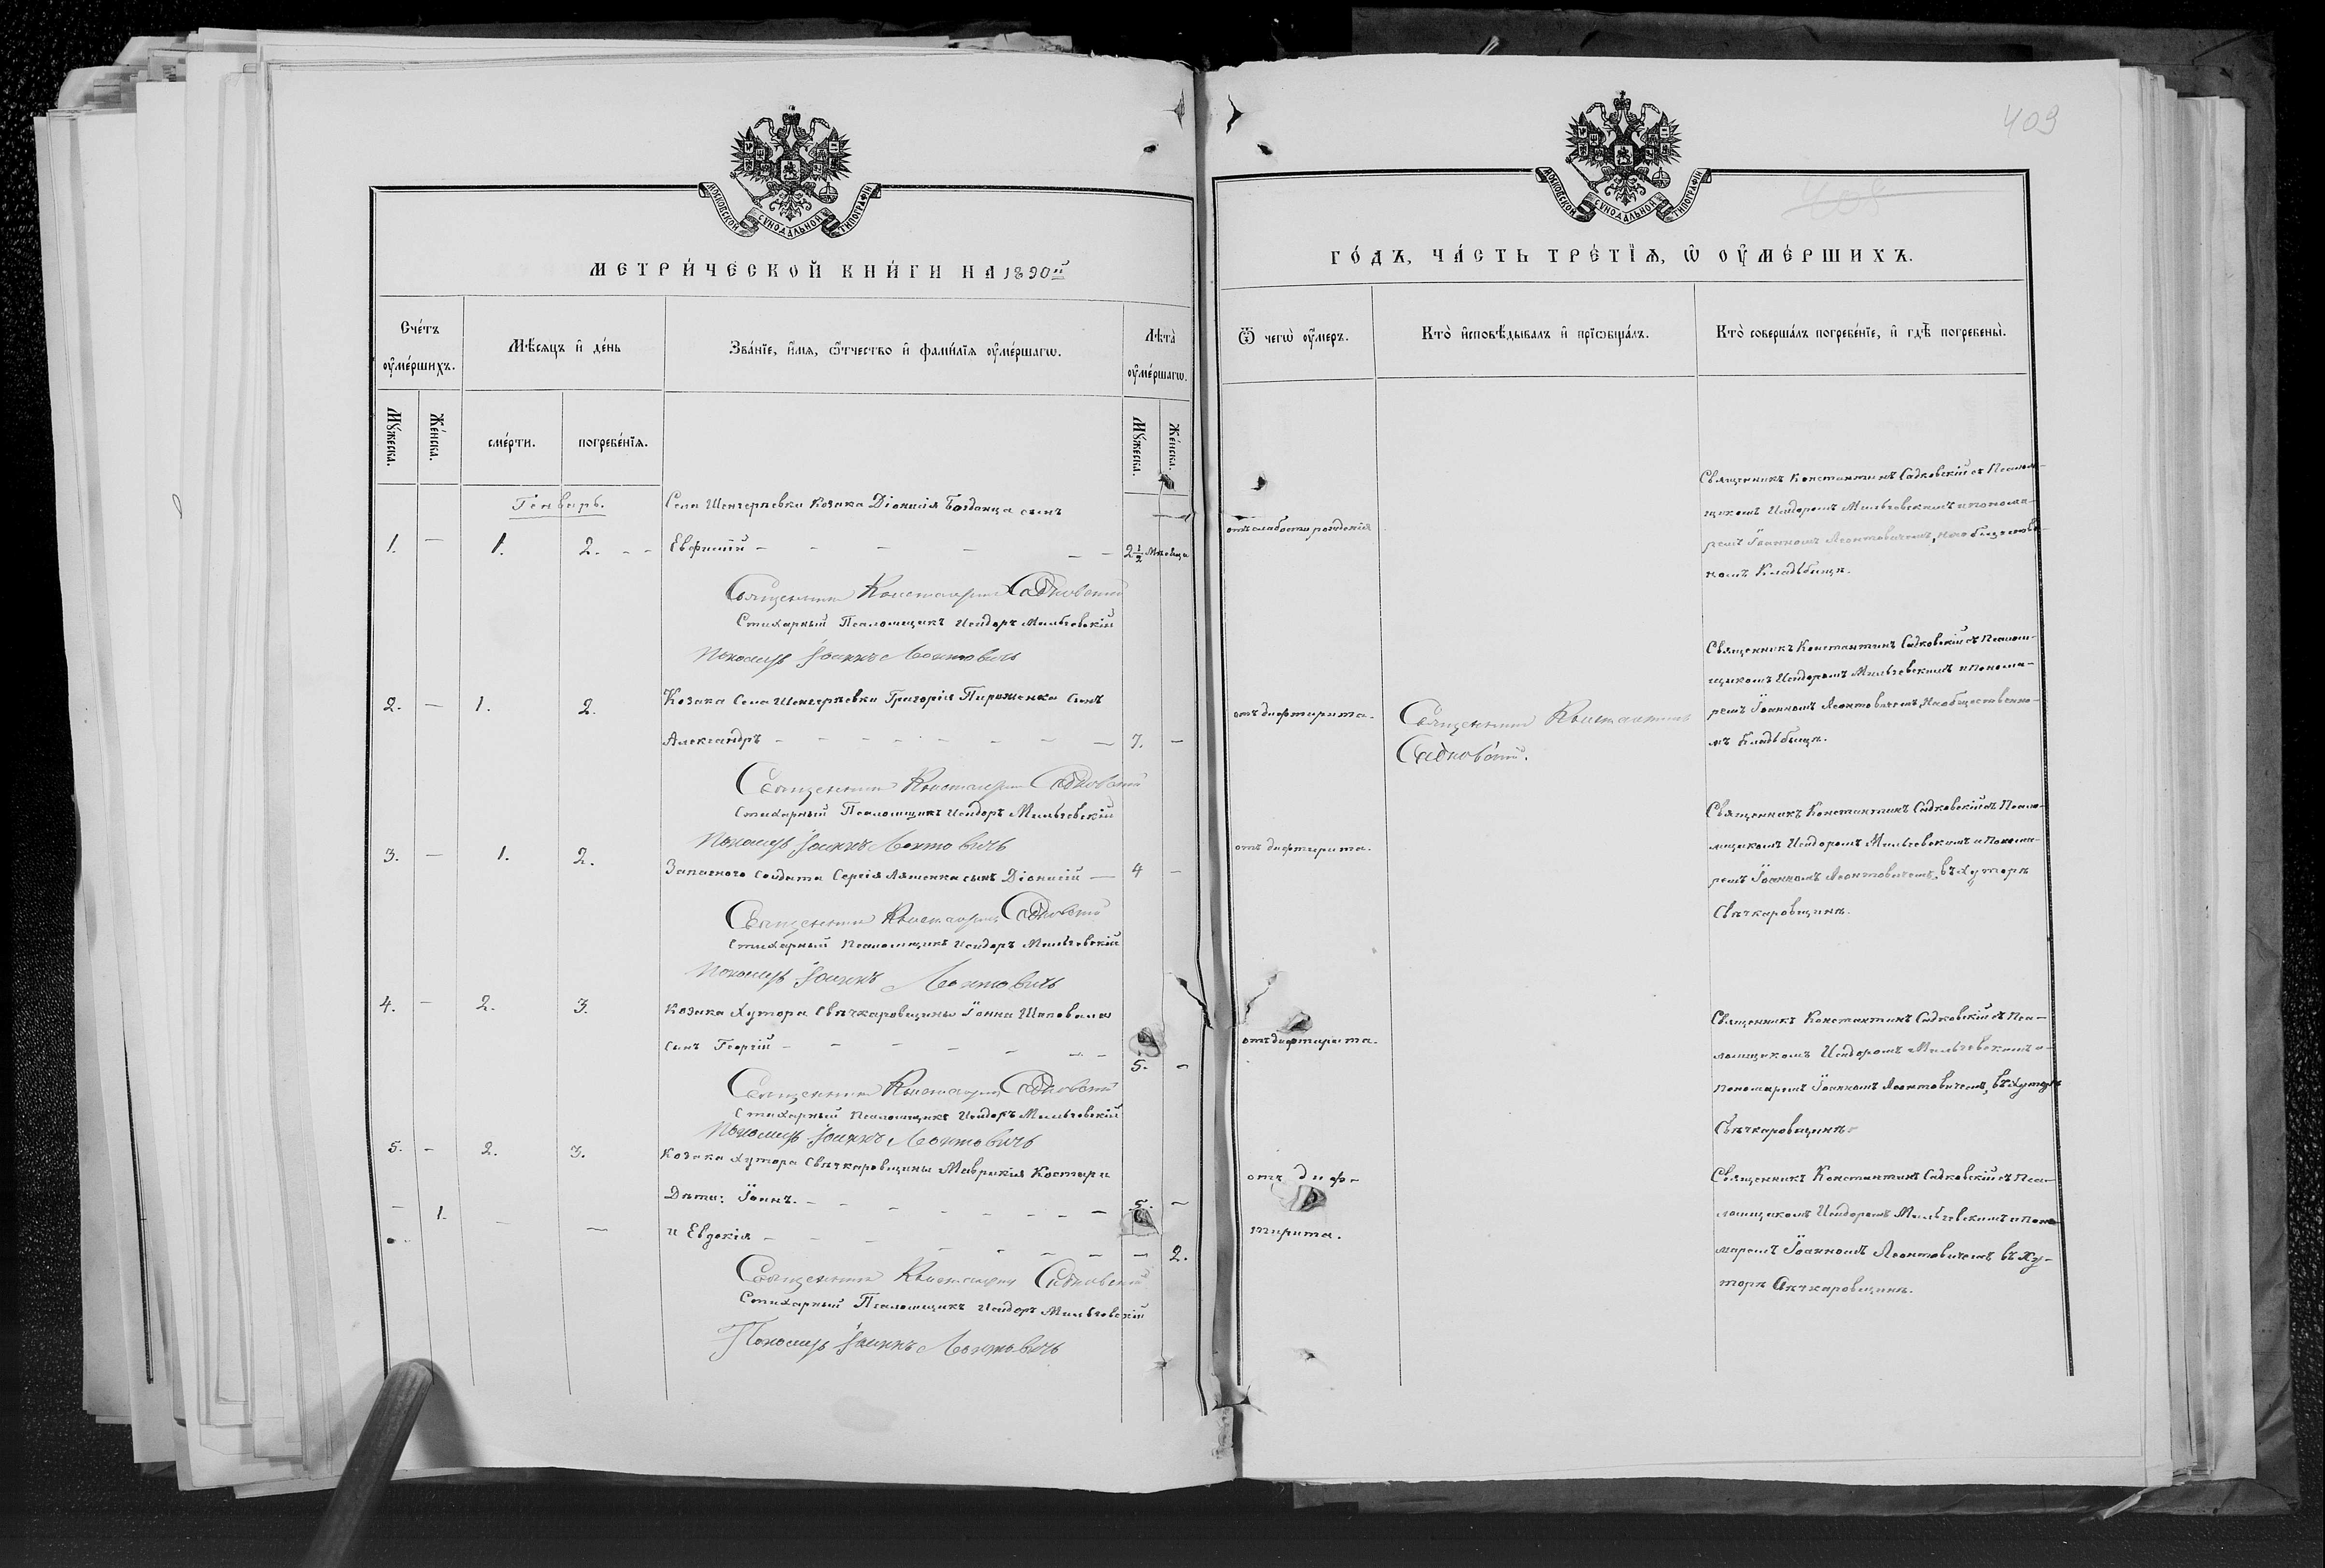 409
МОСКОВСКОЙ СУНОДАЛЬНОЙ ТИПОГРАФІИ
МЕТРИ́ЧЕСКОЙ КНИ́ГИ НА 1890й
Сче́тъ ᲂу҆ме́ршихъ.
Мѣ́сяцъ и҆ де́нь
Зва́нїе, и҆́мя, ѿтчество и҆ фами́лїя ᲂу҆ме́ршагѡ.
Лѣта̀ ᲂу҆ме́ршагѡ.
Мꙋ́жеска.
Же́нска.
сме́рти.
погребе́нїя.
Мꙋ́жеска.
Же́нска.
Генварь.
Села Шенгерѣевки Козака Діонисія Богданца сынъ
1. — 1. 2. Евфимій — 2½ мѣсяца
Священникъ Константинъ Садковскій
Стихарный Псаломщикъ Исидоръ Мильчевскій
Пономарь Іоаннъ Леонтовичъ
2. — 1. 2. Козака Села Шенгерѣевки Григорія Пироженка Сынъ
Александръ — 7. —
Священникъ Константинъ Садковскій
Стихарный Псаломщикъ Исидоръ Мильчевскій
Пономарь Іоаннъ Леонтовичъ
3. — 1. 2. Запасного Солдата Сергія Ляшенка сынъ Діонисій — 4 —
Священникъ Константинъ Садковскій
Стихарный Псаломщикъ Исидоръ Мильчевскій
Пономарь Іоаннъ Леонтовичъ
4. — 2. 3. Козака Хутора Свѣчкаровщины Іоанна Шаповала
Сынъ Георгій — 5. —
Священникъ Константинъ Садковскій
Стихарный Псаломщикъ Исидоръ Мильчевскій
Пономарь Іоаннъ Леонтовичъ
5. — 2. 3. Козака Хутора Свѣчкаровщины Маврикія Костыри
Дѣти: Іоаннъ. — 5. —
— 1. — — и Евдокія — — 2.
Священникъ Константинъ Садковскій
Стихарный Псаломщикъ Исидоръ Мильчевскій
Пономарь Іоаннъ Леонтовичъ
МОСКОВСКОЙ СУНОДАЛЬНОЙ ТИПОГРАФІИ
ГО́ДЪ, ЧА́СТЬ ТРЕ́ТЇѦ, Ѡ҆ ᲂУ҆МЕ́РШИХЪ.
Ѿ чегѡ̀ ᲂу҆́меръ.
Кто̀ и҆сповѣ́дывалъ и҆ прїѡбща́лъ.
Кто̀ соверша́лъ погребе́нїе, и҆ гдѣ̀ погребены̀.
отъ слабости рожденія
Священникъ Константинъ Садковскій съ Псалом-
щикомъ Исидоромъ Мильчевскимъ и понома-
ремъ Іоанномъ Леонтовичемъ, на общественно-
номъ Кладбищѣ.
отъ дифтирита.
Священникъ Константинъ
Садковскій.
Священникъ Константинъ Садковскій съ Псалом-
щикомъ Исидоромъ Мильчевскимъ и понома-
ремъ Іоанномъ Леонтовичемъ, на общественно-
мъ кладбищѣ.
отъ дифтирита.
Священникъ Константинъ Садковскій съ Псало-
мщикомъ Исидоромъ Мильчевскимъ и Понома-
ремъ Іоанномъ Леонтовичемъ, въ Хуторѣ
Свѣчкаровщинѣ.
отъ дифтирита.
Священникъ Константинъ Садковскій съ Пса-
ломщикомъ Исидоромъ Мильчевскимъ и
Пономаремъ Іоанномъ Леонтовичемъ, въ Хуторѣ
Свѣчкаровщинѣ
отъ диф-
тирита.
Священникъ Константинъ Садковскій съ Пса-
ломщикомъ Исидоромъ Мильчевскимъ и поно-
маремъ Іоанномъ Леонтовичемъ, въ Ху-
торѣ Свѣчкаровщинѣ.